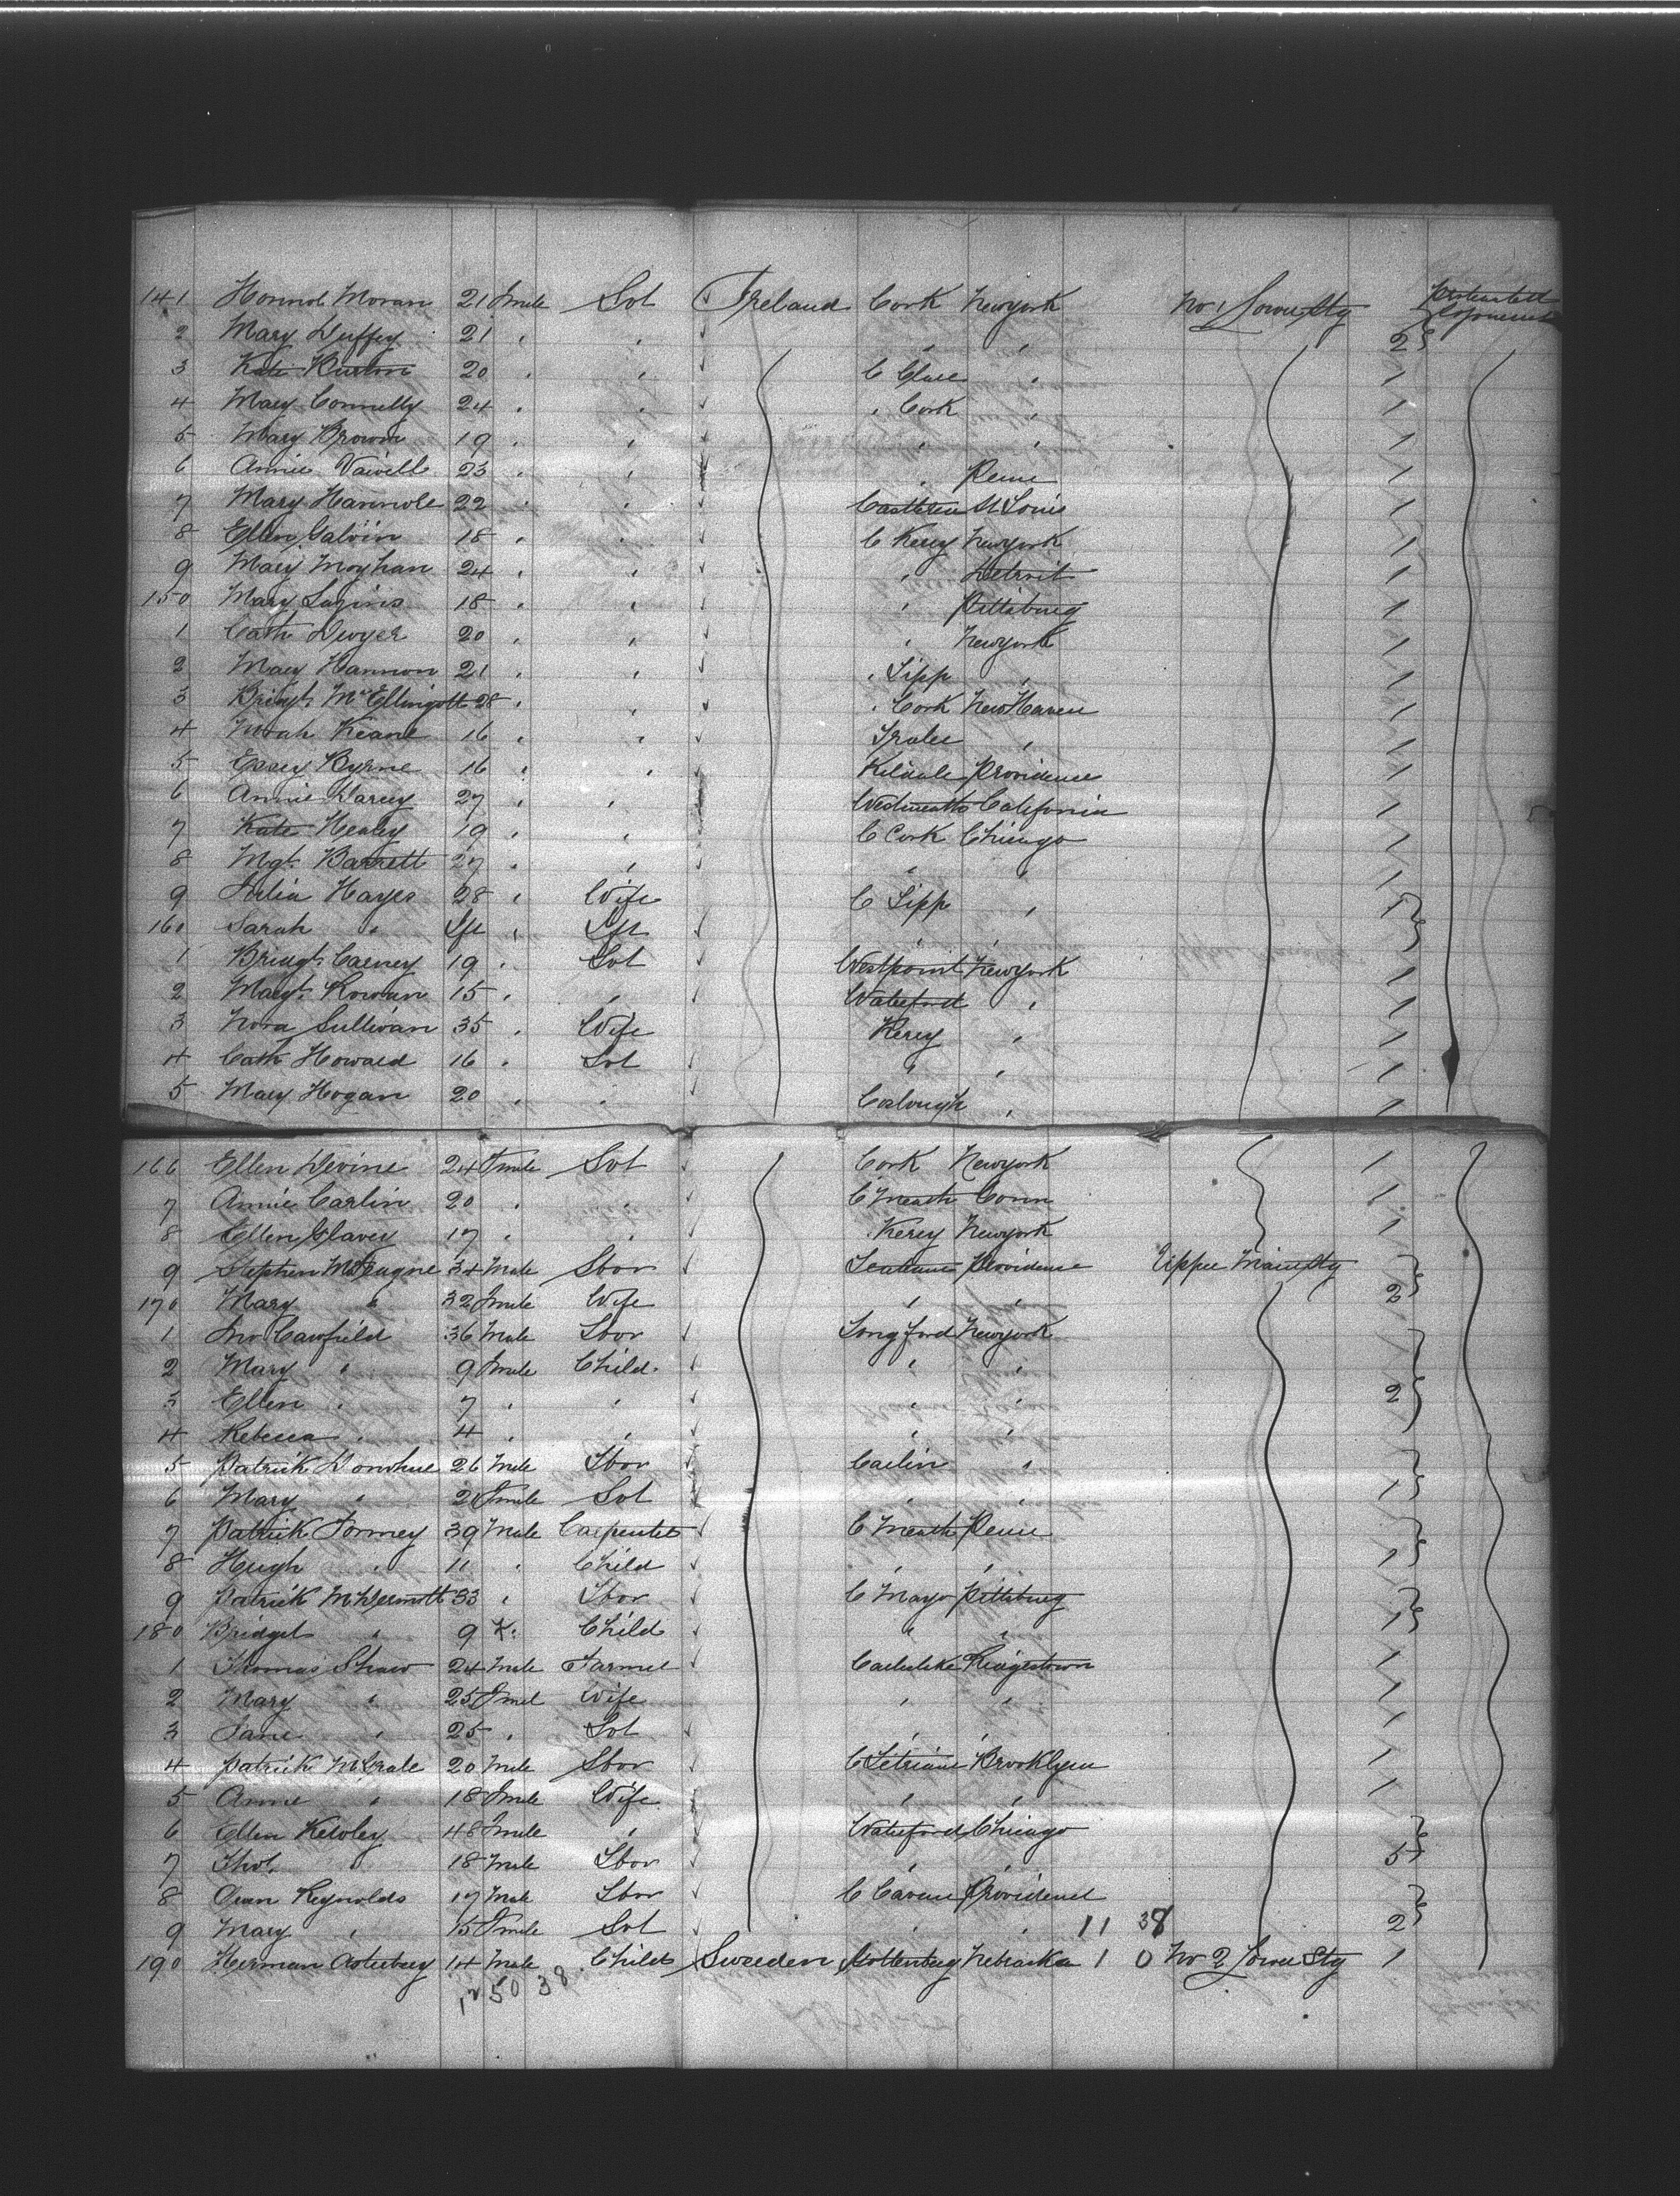 141 Honnol Moran 21 Fmle Svt Ireland Cork Newyork No 1 Lower Stg
2 Mary Duffey 21 , , , , 2
3 Kate Burton 20 , , C Clare , 1
4 Mary Connelly 24 , , , Cork , 1
5 Mary Brown 19 , , , , 1
6 Annie 23 , , , Penn 1
7 Mary 22 , , St Louis 1
8 Ellen Galvin 18 , , C Kerry Newyork 1
9 Mary Moyhan 24 , , , Detroit 1
150 Mary 18 , , , Pittsburg 1
1 Cath Dwyer 20 , , , Newyork 1
2 Mary Hannon 21 , , , Tipp , 1
3 Bridgt McEllingott 28 , , , Cork New Haven 1
4 Norah Keane 16 , , Tralee , 1
5 Essey Byrne 16 , , Kildale Providence 1
6 Annie Darcey 27 , , Westmeath California 1
7 Kate Healey 19 , , C Cork Chicago 1
8 Mgt Barrett 27 , , , , 1
9 Julia Hayes 28 , Wife C Tipp , 1
160 Sarah " Ift , Ift , ,
1 Bridgt Carney 19 , Svt Westpoint Newyork 1
2 Margt Rowan 15 , , Wateford , 1
3 Nora Sullivan 35 , Wife Kerry , 1
4 Cath Howard 16 , Svt , , 1
5 Mary Hogan 20 , , , 1
166 Ellen Devine 24 Fmle Svt Cork Newyork 1
7 Annie Carlin 20 , , C Meath Conn 1
8 Ellen Glavey 17 , , Kerry Newyork 1
9 Stephen 34 Male Lbor Providence Upper Main Stg
170 Mary " 32 Fmle Wife , , 2
1 Jno Cawfield 36 Male Lbor Longford Newyork
2 Mary " 9 Fmle Child , ,
3 Ellen , 7 , , , , 2
4 Rebecca , 4 , , , ,
5 Patrick Donohue 26 Mle Lbor ,
6 Mary " Fmle Svt , , 1
7 Patrick Tormey 39 Male Carpenter C Meath Penn
8 Hugh " 11 , Child , , 1
9 Patrick McDermott 33 , Lbor C Mayo Pittsburg
180 Bridget " 9 Child , , 1
1 Thomas Shaw 24 Male Farmer Kingstown 1
2 Mary " 25 Fmel Wife , , 1
3 Jane " 25 , Svt , , 1
4 Patrick 20 Male Lbor C Letriam Brooklyn 1
5 Anne " 18 Fmle Wife , , 1
6 Ellen Kewley 48 Fmle , Wateford Chicago
7 Thos " 18 Male Lbor , , 5
8 Reynolds 17 Male Lbor C Cavan Providence
9 Mary , 15 Fmle Svt , , 11 38 2
190 Herman 14 Male Child Sweeden Gottenbeg Nebraska 1 0 No 2 Lower Stg 1
12 50 38